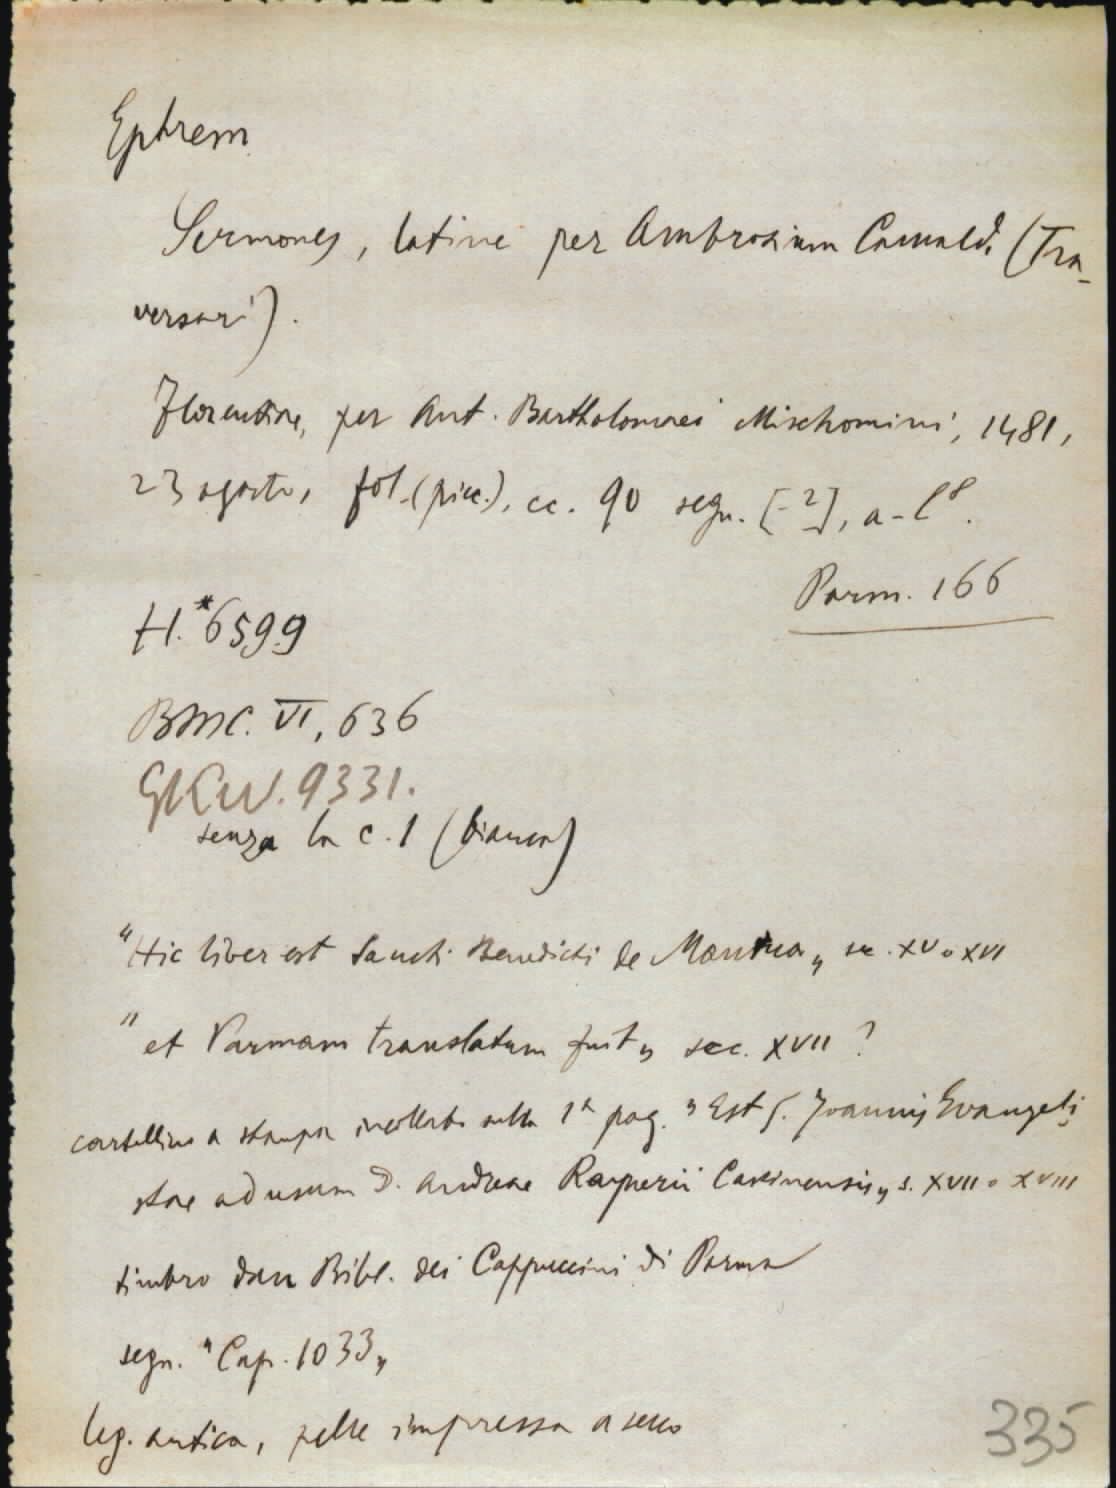 Ephrem
Sermones, latine per Ambrosium Camald. (Tra-
versari).
Florentiae, per Ant. Bartholomaei Mischomini, 1481,
23 agosto, fol. (picc.), cc. 90 segn. [-2], a-l8.
Parm. 166
H.*6599
BMC. VI, 636
GKW. 9331.
senza la c. 1 (bianca)
"Hic liber est Sancti Benedicti de Mantua„ sec. XV o XVI
"et Parmam translatum fuit„ sec. XVII ?
cartellino a stampa incollato sulla 1a pag. "Est S. Joannis Evangeli
stae ad usum D. Andreae Raynerii Casinensis„ s. XVII o XVIII
timbro della Bibl. dei Cappuccini di Parma
segn. "Cap. 1033„
leg. antica, pelle impressa a secco
335